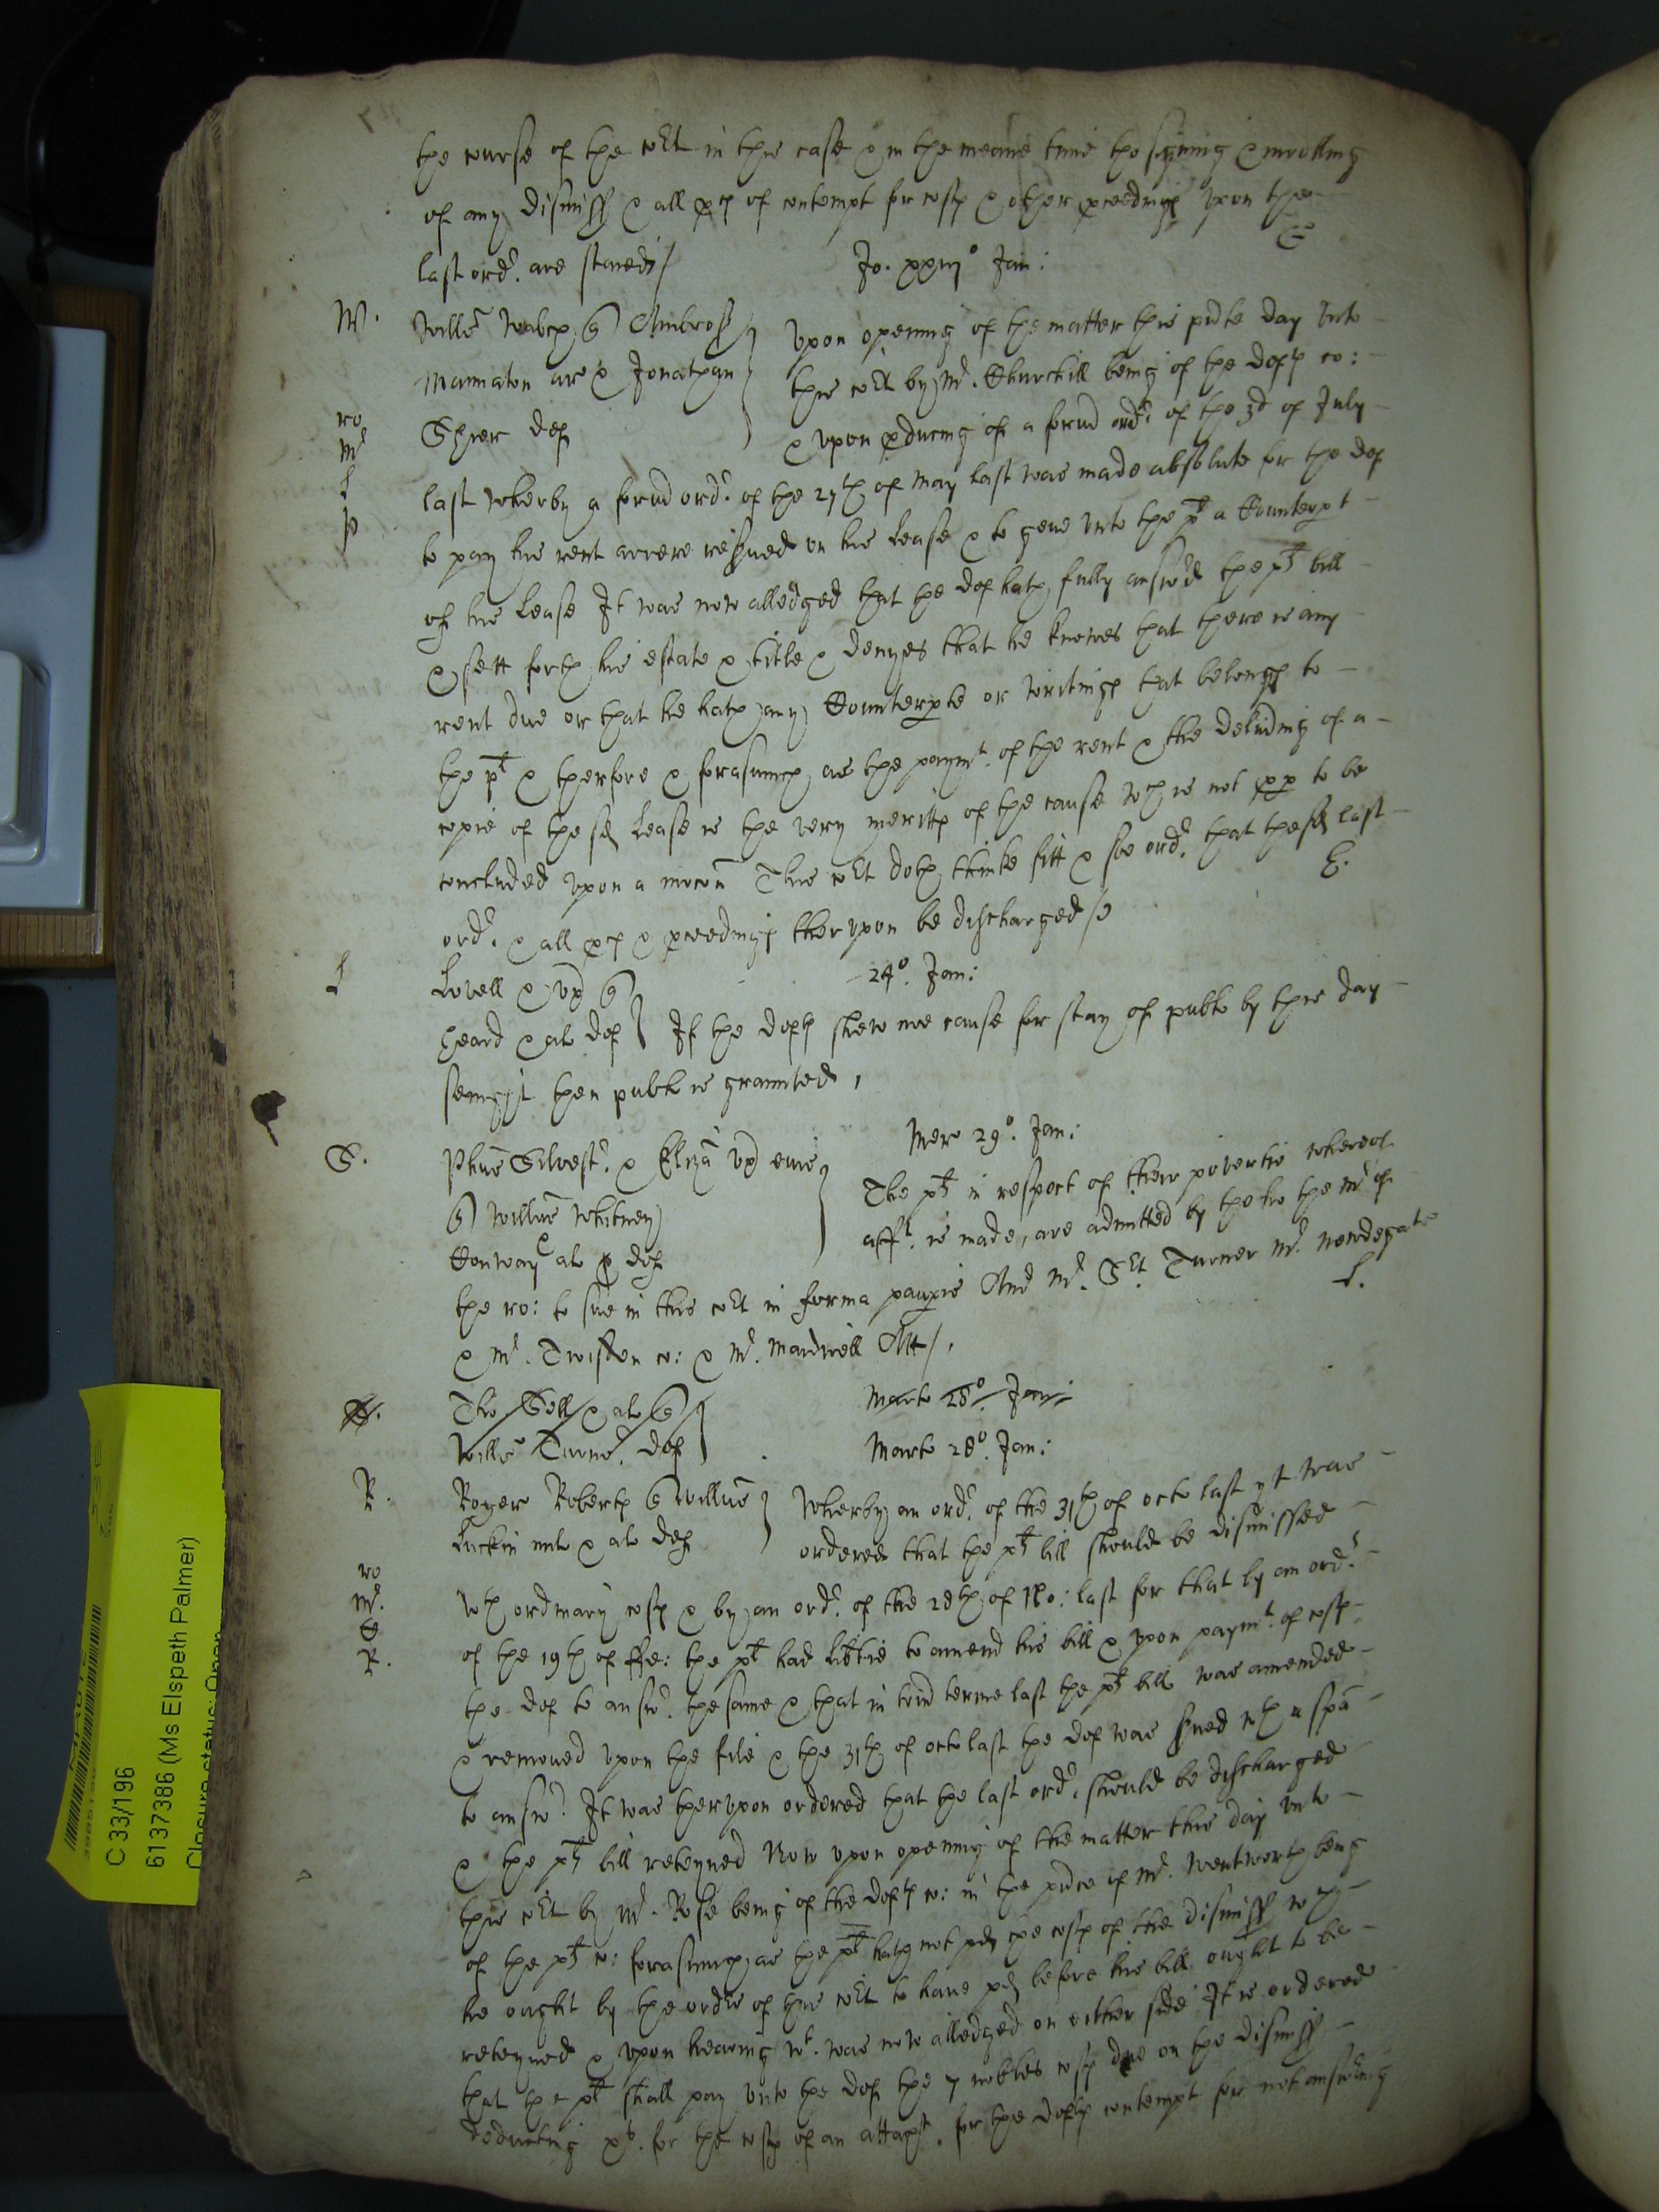 the course of the cort in this case & in the meane time the signing & inrolling
of any dismiss & all pces of contempt for costs & other pceedings upon the
last ordr. are stayed /
E
Jo. xxiijo Jan:
W.
Willm Walch Ambrose
Manaton ar & Jonathan
Sher def
Upon opening of the matter this pnte day unto
this cort by Mr. Churchill being of the defts co:
& upon pducing of a formd ordr. of the 3d of July
ro
Mr
L
p
last wherby a formd ordr. of the 27th of May last was made absolute for the def
to pay the rent arrere reserved on the Lease & to geve unto the plt a Counterpt
of the Lease It was now alledged that the def hath fully answd the plts bill
& sett forth his estate & title & denyes that he knowes that there is any
rent due or that he hath any Counterpte or writings that belongs to
the plt & therfore & forasmuch as the paymt. of the rent & the delivding of a
copie of the sd Lease is the very meritts of the cause wch is not pp to be
concluded upon a mocon This cort doth thinke fitt & soe ordr. that the sd last
E.
ordr. & all pces & pceedings therupon be discharged /
L
Lovell & ux
heard & al def
24o. Jan:
If the defts shew noe cause for stay of publ by this day
sennight then publ is graunted,
S.
Phus Silvestr. & Eliza ux eius
Willm Whitney
Conway al def
Merc 29o. Jan:
The plts in respect of their povertie whereof
afft. is made, are admitted by the ho: the Mr of
the ro: to sue in this cort in forma paupis And Mr. Sert. Turner Mr. Newdegate
L.
& Mr. Twisden co: & Mr. Maudwell Att /,
S.
Tho Sell & al
Willm Turnr. def
Marte 28o. Jan:
Marte 28o. Jan:
R.
Roger Roberts Willm
Luckin mil & al def
Wherby an ordr. of the 31th of Octo last yt was
ordered that the plts bill should be dismissed
ro
Mr.
E
R.
wth ordinary costs & by an ordr. of the 28th of No: last for that by an ordr.
of the 19th of ffe: the plt had libtie to amend his bill & upon paymt. of costs
the def to answr. the same & that in trin terme last the plts bill was amended
& removed upon the file & the 31th of Octo last the def was srved wth a spa
to answr. It was therupon ordered that the last ordr. should be discharged
& the plts bill reteyned Now upon opening of the matter this day unto
this cort by Mr. Rose being of the defts co: in the pnce of Mr. Wentworth being
of the plts co: forasmuch as the plt hath not pd the costs of the dismiss wch
he ought by the ordrs of this cort to have pd before his bill ought to be
reteyned & upon hearing wt. was now alledged on either side It is ordered
that the plt shall pay unto the def the 7 nobles costs due on the dismiss
deducting xs. for the costs of an attacht. for the defts contempt for not answering
C 33/196
6137386 (Ms Elspeth Palmer)
Closure status: Open